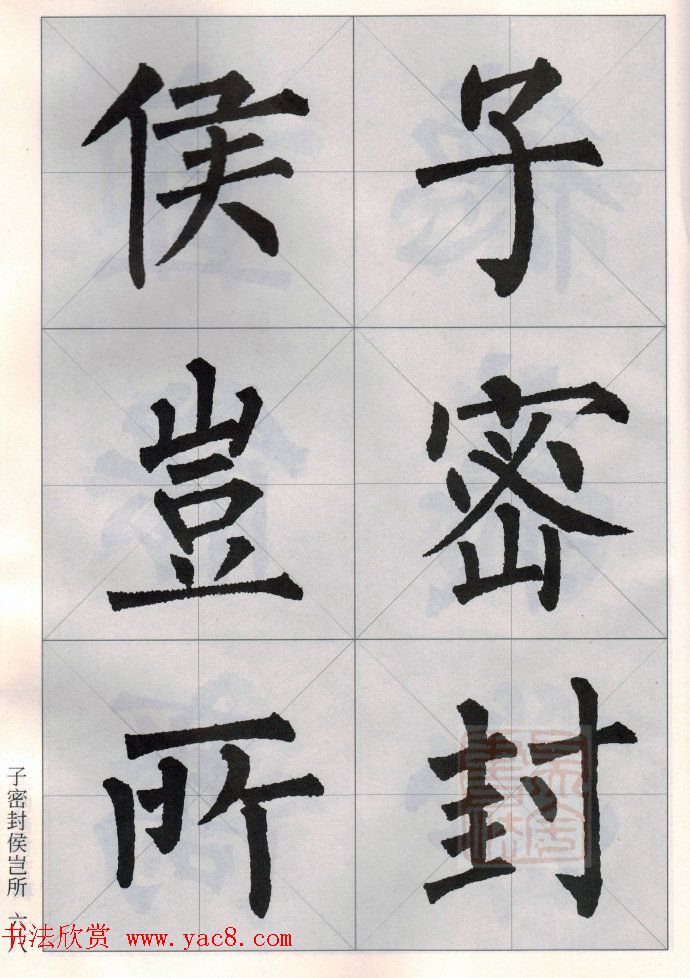 子密封
侯豈所
子密封侯岂所 六八
书法欣赏 www.yac8.com